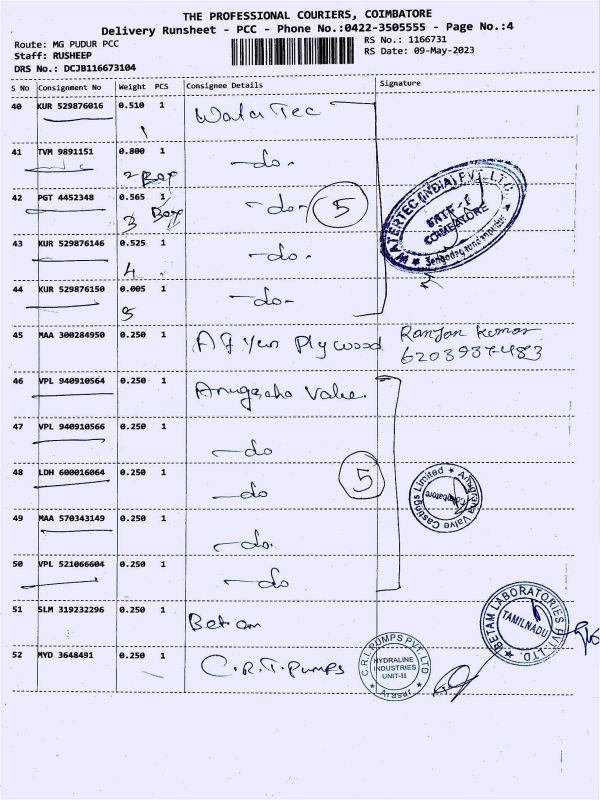 THE PROFESSIONAL COURIERS, COIMBATORE
Delivery Runsheet - PCC - Phone No.:0422-3505555 - Page No.:4
Route: MG PUDUR PCC
Staff: RUSHEEP
DRS No.: DCJB116673104
RS No.: 1166731
RS Date: 09-May-2023
S No Consignment No Weight PCS Consignee Details Signature
40 KUR 529876016 0.510 1 WaterTec
1
41 TVM 9891151 0.800 1 -do-
2 Box
42 PGT 4452348 0.565 1 -do- 5
3 Box
43 KUR 529876146 0.525 1 -do-
4
44 KUR 529876150 0.005 1 -do-
5
WATERTEC (INDIA) PVT. LTD.
GATE - 1
COIMBATORE
45 MAA 300284950 0.250 1 Plywood Ranjan Kumar
6203987483
46 VPL 940910564 0.250 1 Valve
47 VPL 940910566 0.250 1 -do
48 LDH 600016064 0.250 1 -do 5
49 MAA 570343149 0.250 1 -do.
50 VPL 521066604 0.250 1 -do
Anugraha Valve Castings Limited
Coimbatore
51 SLM 319232296 0.250 1 Betam
BETAM LABORATORIES PVT. LTD.
TAMILNADU
52 MYD 3648491 0.250 1 C.R.I. Pumps
C.R.I. PUMPS PVT. LTD
HYDRALINE
INDUSTRIES
UNIT-II